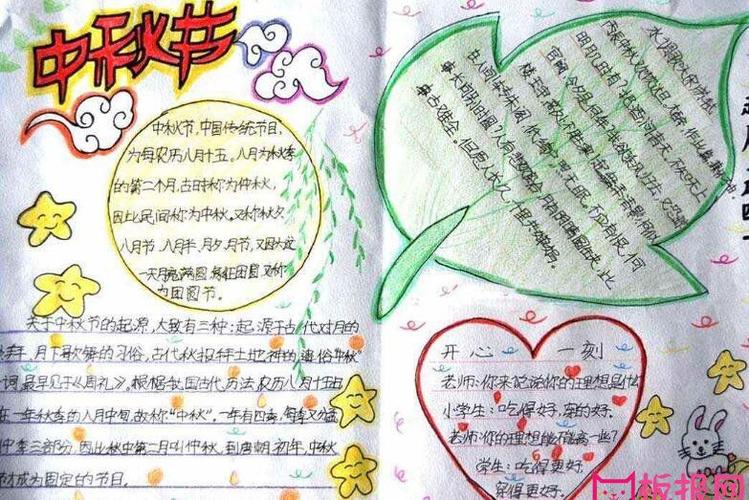 中秋节
中秋节,中国传统节日,
为每农历八月十五。八月为秋季
的第二个月,古时称为仲秋,
因此民间称为中秋。又称秋夕,
八月节,八月半,月夕,月节,又因为这
一天月亮满圆,象征团圆,又称
为团圆节。
关于中秋节的起源,大致有三种:起源于古代对月的
月下歌舞的习俗,古代秋报拜土地神的遗俗"中秋"
一词,最早见于《周礼》。根据我国古代历法,农历八月十五
在一年秋季的八月中旬,故称"中秋"。一年有四季,每季又分
仲季三部分,因此秋中第二月叫仲秋,到唐朝初年,中秋
才成为固定的节日。
水调歌头
丙辰中秋,欢饮达旦,大醉,作此篇,兼怀子由
明月几时有?把酒问青天。不知天上
宫阙,今夕是何年。我欲乘风归去,又恐琼
楼玉宇,高处不胜寒。起舞弄清影,何似
在人间!转朱阁,低绮户,照无眠。不应有恨,何
事长向别时圆?人有悲欢离合,月有阴晴圆缺,此
事古难全。但愿人长久,千里共婵娟。
开心一刻
老师:你来说说你的理想是什
小学生:吃得好,穿的好.
老师:你的理想能不能高一些?
学生:吃得更好.
穿得更好.
板报网